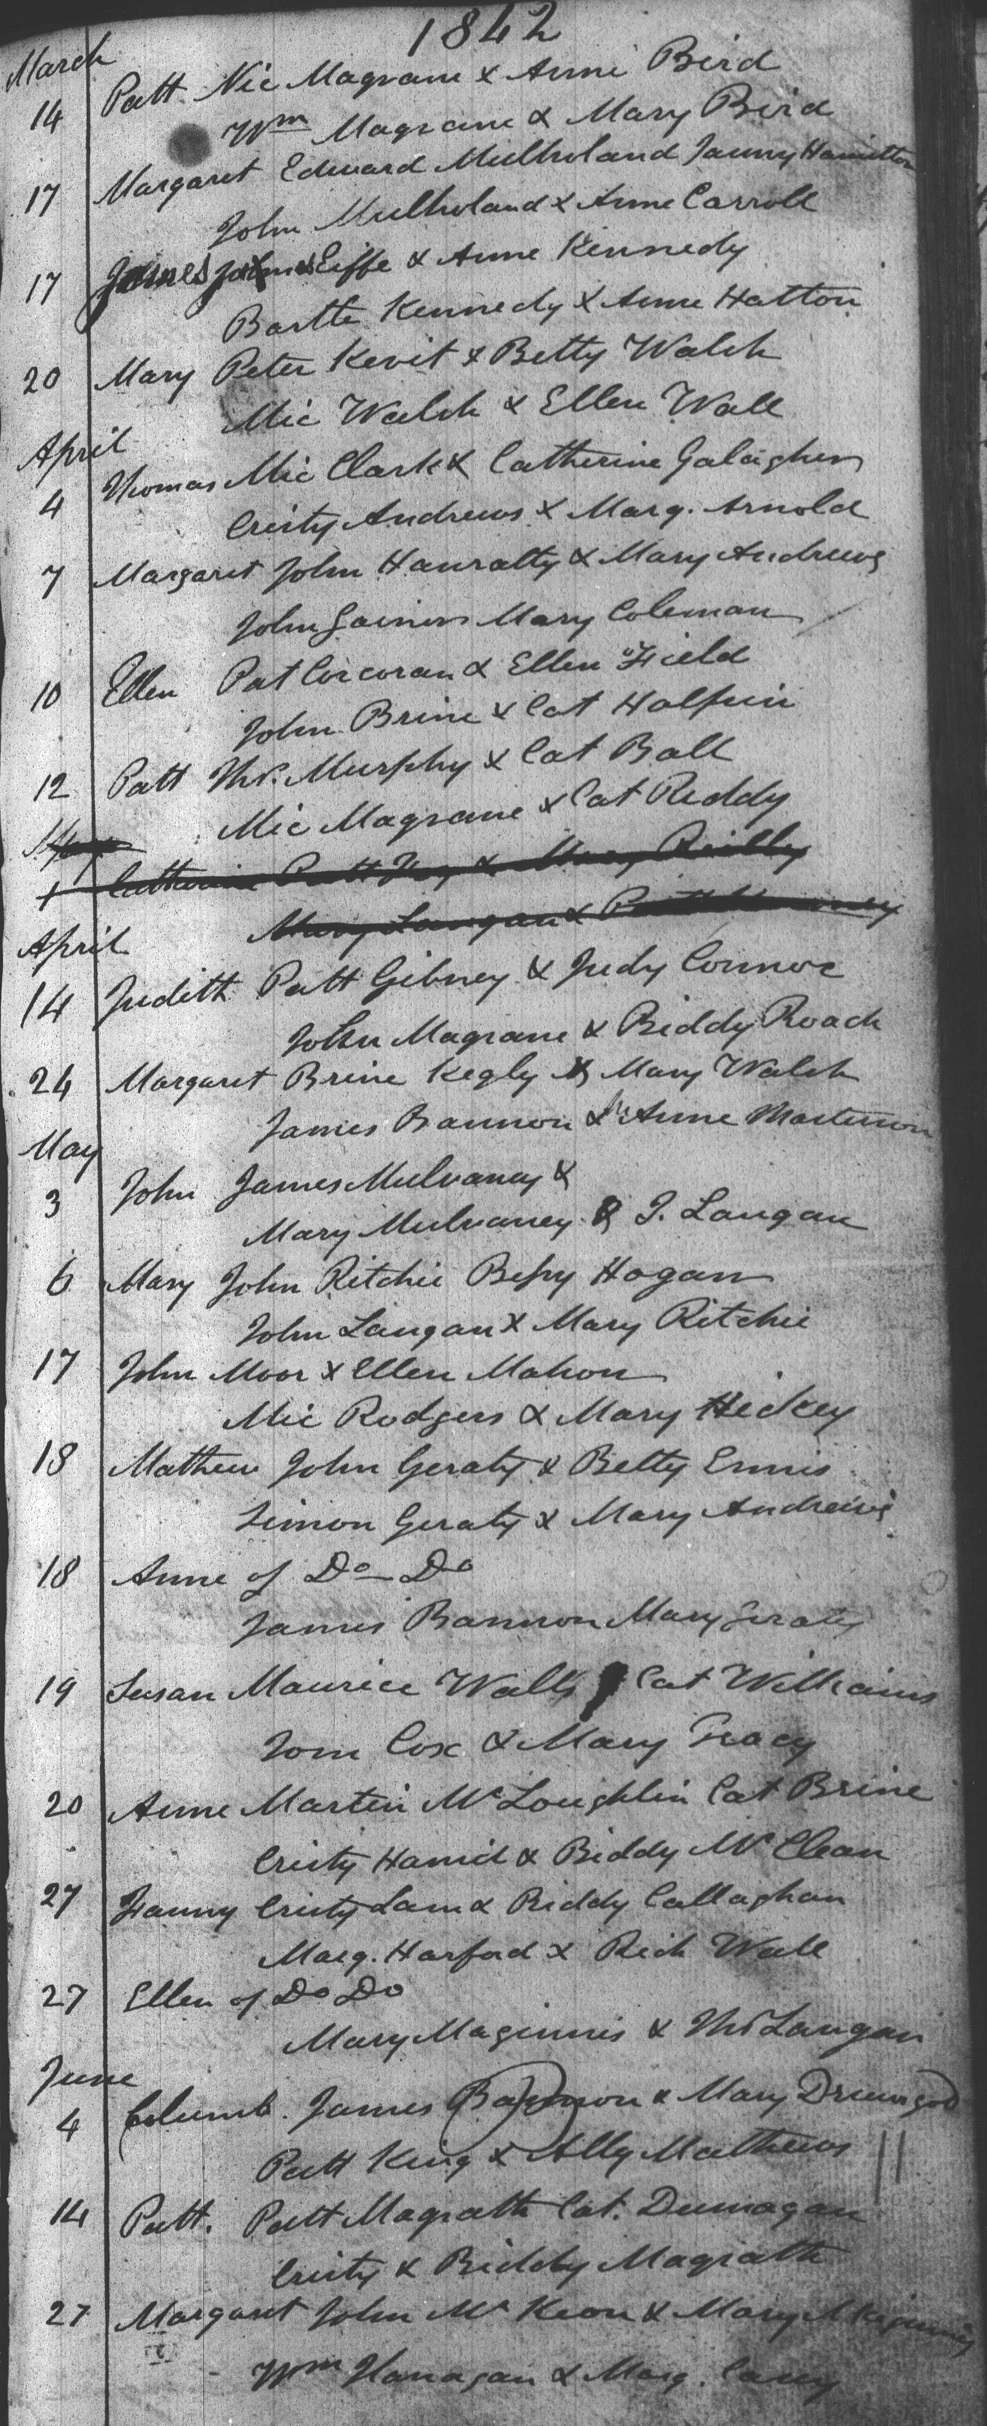 1842
March
14 Patt Nic Magrane & Anne Bird
Wm Magrane & Mary Bird
17 Margaret Edward Mulholand Fanny Hamilton
John Mulholand & Anne Carroll
17 James Eiffe & Anne Kennedy
Bartle Kennedy & Anne Hatton
20 Mary Peter Kevit & Betty Walsh
Mic Walsh & Ellen Wall
April
4 Thomas Mic Clark & Catherine Galagher
Cristy Andrews & Marg. Arnold
7 Margaret John Hanratty & Mary Andrews
John Gainor Mary Coleman
10 Ellen Pat Corcoran & Ellen Field
John Brine & Cat Halpin
12 Patt Ths. Murphy & Cat Ball
Mic Magrane & Cat Reddy
1 Catherine Patt & Mary Reilly
Mary Langan & Patt
April
14 Judith Patt Gibney & Judy Connor
John Magrane & Biddy Roach
24 Margaret Brine Kegly & Mary Walsh
James Bannon & Anne Masterson
May
3 John James Mulvaney &
Mary Mulvaney & J. Langan
6 Mary John Ritchie Bessy Hogan
John Langan & Mary Ritchie
17 John Moor & Ellen Mahon
Mic Rodgers & Mary Hickey
18 Mathew John Geraty & Betty Ennis
Simon Geraty & Mary Andrews
18 Anne of Do Do
James Bannon Mary Geraty
19 Susan Maurice Walls Cat Williams
Tom Cox & Mary Tracy
20 Anne Martin McLoughlin Cat Brine
Cristy Hamil & Biddy McClean
27 Fanny Cristy Lam & Biddy Callaghan
Marg. Harford & Rich Wall
27 Ellen of Do Do
Mary Maginnis & Ths Langan
June
4 Columb. James Bannon & Mary Drumgod
Patt King & Ally Mathews
14 Patt. Patt Magrath Cat. Dunnagan
Cristy & Biddy Magrath
27 Margaret John McKeon & Mary
Wm Flanagan & Marg. Casey